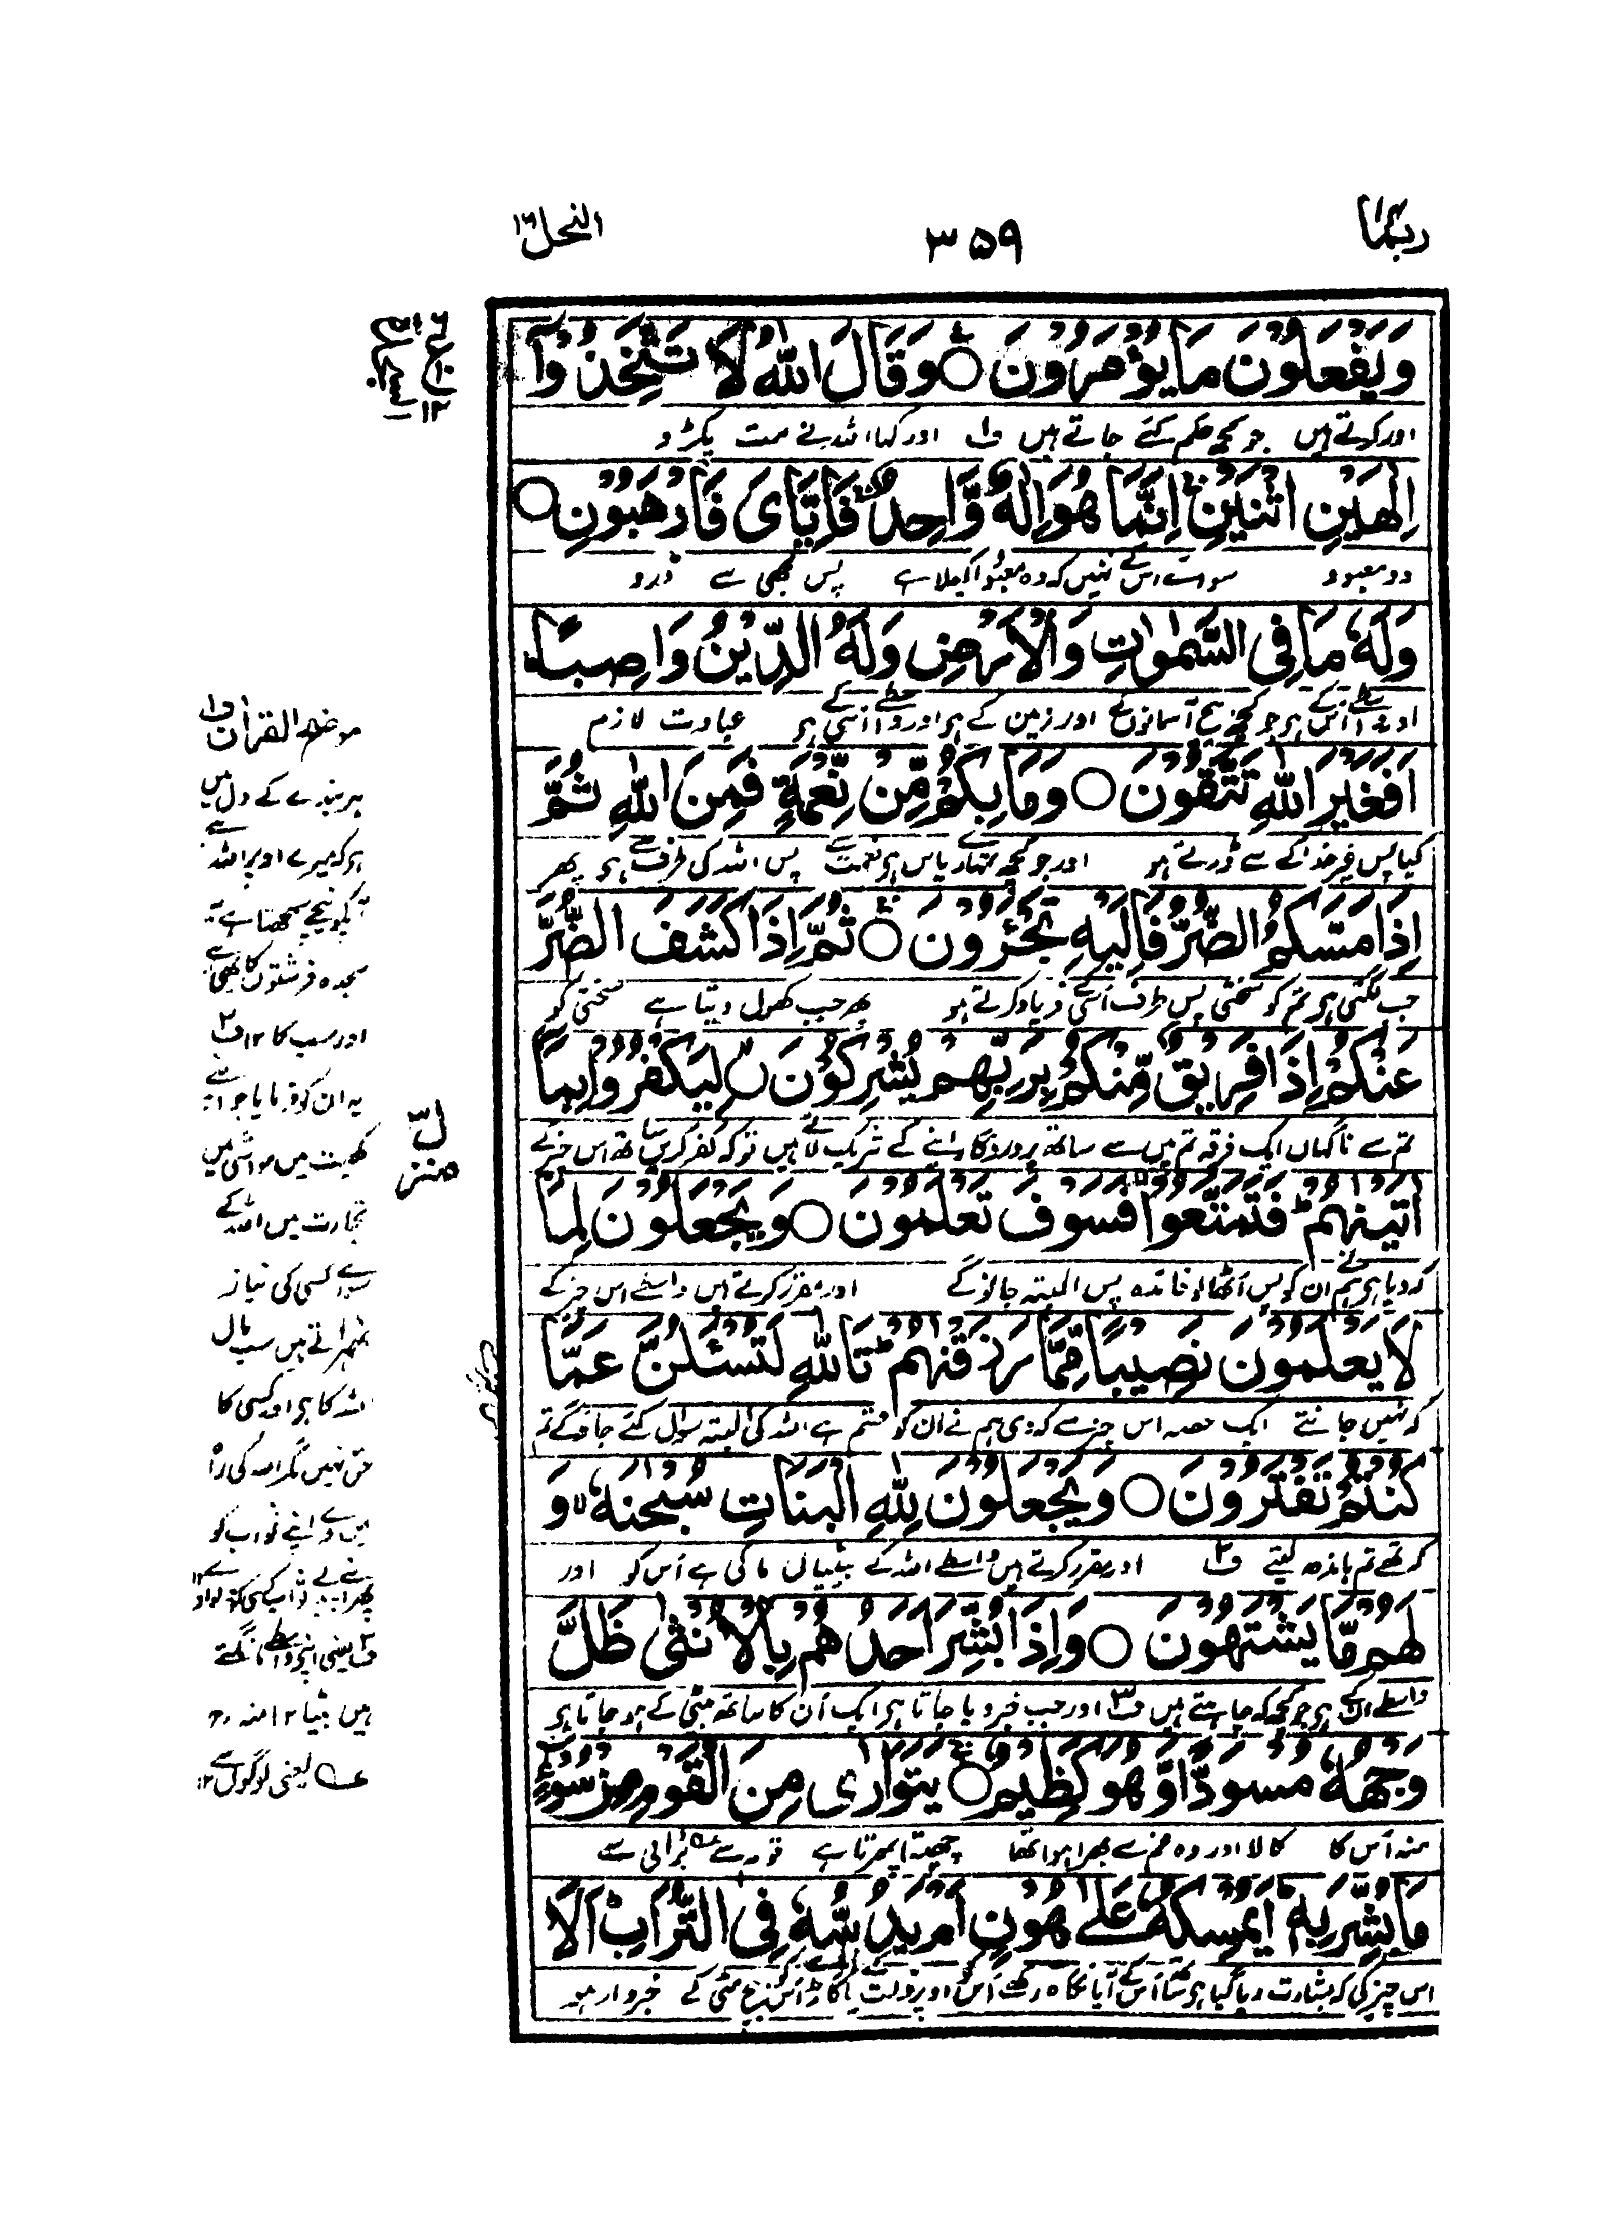 ربما ۱۴
۳۵۹
النحل ۱۶
وَيَفْعَلُوْنَ مَا يُؤْمَرُوْنَ ○ وَقَالَ اللّٰهُ لَا تَتَّخِذُوْٓا
اور کرتے ہیں جو کچھ حکم کئے جاتے ہیں ف۱ اور کہا اللہ نے مت پکڑو
اِلٰهَيْنِ اثْنَيْنِ ۚ اِنَّمَا هُوَ اِلٰهٌ وَّاحِدٌ ۚ فَاِيَّايَ فَارْهَبُوْنِ ○
دو معبود سوائے اس کے نہیں کہ وہ معبود اکیلا ہے پس مجھی سے ڈرو
وَلَهٗ مَا فِى السَّمٰوٰتِ وَالْاَرْضِ وَلَهُ الدِّيْنُ وَاصِبًا ؕ
اور واسطے اس کے ہر جو کچھ بیچ آسمانوں کے اور زمین کے ہر اور واسطے اسی کے ہر عبادت لازم
اَفَغَيْرَ اللّٰهِ تَتَّقُوْنَ ○ وَمَا بِكُمْ مِّنْ نِّعْمَةٍ فَمِنَ اللّٰهِ ثُمَّ
کیا پس غیر خدا کے سے ڈرتے ہو اور جو کچھ تمہارے پاس ہر نعمت سے پس اللہ کی طرف سے ہر پھر
اِذَا مَسَّكُمُ الضُّرُّ فَاِلَيْهِ تَجْـَٔرُوْنَ ○ ثُمَّ اِذَا كَشَفَ الضُّرَّ
جب لگتی ہر تم کو سختی پس طرف اسی کے فریاد کرتے ہو پھر جب کھول دیتا ہے سختی کو
عَنْكُمْ اِذَا فَرِيْقٌ مِّنْكُمْ بِرَبِّهِمْ يُشْرِكُوْنَ ۙ لِيَكْفُرُوْا بِمَآ
تم سے ناگہاں ایک فرقہ تم میں سے ساتھ پروردگار اپنے کے شریک لاتے ہیں تو کہ کفر کریں ساتھ اس چیز کے
اٰتَيْنٰهُمْ ؕ فَتَمَتَّعُوْا فَسَوْفَ تَعْلَمُوْنَ ○ وَيَجْعَلُوْنَ لِمَا
کہ دیا ہر ہم نے ان کو پس اٹھا لو فائدہ پس البتہ جانو گے اور مقرر کرتے ہیں واسطے اس چیز کے
لَا يَعْلَمُوْنَ نَصِيْبًا مِّمَّا رَزَقْنٰهُمْ ؕ تَاللّٰهِ لَتُسْـَٔلُنَّ عَمَّا
کہ نہیں جانتے ایک حصہ اس چیز سے کہ دی ہم نے ان کو قسم ہے اللہ کی البتہ سوال کئے جاؤ گے
كُنْتُمْ تَفْتَرُوْنَ ○ وَيَجْعَلُوْنَ لِلّٰهِ الْبَنٰاتِ سُبْحٰنَهٗ ۙ وَ
کہ تھے تم باندھ لیتے ف۲ اور مقرر کرتے ہیں واسطے اللہ کے بیٹیاں پاکی ہے اس کو اور
لَهُمْ مَّا يَشْتَهُوْنَ ○ وَاِذَا بُشِّرَ اَحَدُهُمْ بِالْاُنْثٰى ظَلَّ
واسطے ان کے ہر جو کچھ کہ چاہتے ہیں ف۳ اور جب خبر دیا جاتا ہر ایک ان کا ساتھ بیٹی کے ہو جاتا ہر
وَجْهُهٗ مُسْوَدًّا وَّهُوَ كَظِيْمٌ ○ يَتَوَارٰى مِنَ الْقَوْمِ مِنْ سُوْٓءِ
منہ اس کا کالا اور وہ غم سے بھرا ہوا تھا چھپتا پھرتا ہے قوم سے برائی سے
مَا بُشِّرَ بِهٖ ؕ اَيُمْسِكُهٗ عَلٰى هُوْنٍ اَمْ يَدُسُّهٗ فِى التُّرَابِ ؕ اَلَا
اس چیز کی کہ بشارت دیا گیا ہر ساتھ اس کے آیا نگاہ رکھے اس کو اوپر ذلت کے یا گاڑ دے اس کو بیچ مٹی کے خبردار ہو
منزل ۳
موضح القرآن ف۱
ہر بندے کے دل میں
ہر کہ میرے اوپر اللہ ہے
آپکو نیچے سمجھتا ہے یہ
سجدہ فرشتوں کا بھی ہے
اور سب کا ۱۲ ف۲
یہ ان کو فرمایا جو اپنے
کھیت میں مواشی میں
تجارت میں اللہ کے
سوائے کسی کی نیاز
ٹھہراتے ہیں سب مال
اللہ کا ہر اور کسی کا
حق نہیں مگر اللہ کی راہ
میں دے اپنے ثواب کو
ف۳ یعنی اپنے واسطے مانگتے
ہیں بیٹا ۱۲ منہ رح
یعنی لوگوں سے ۱۲